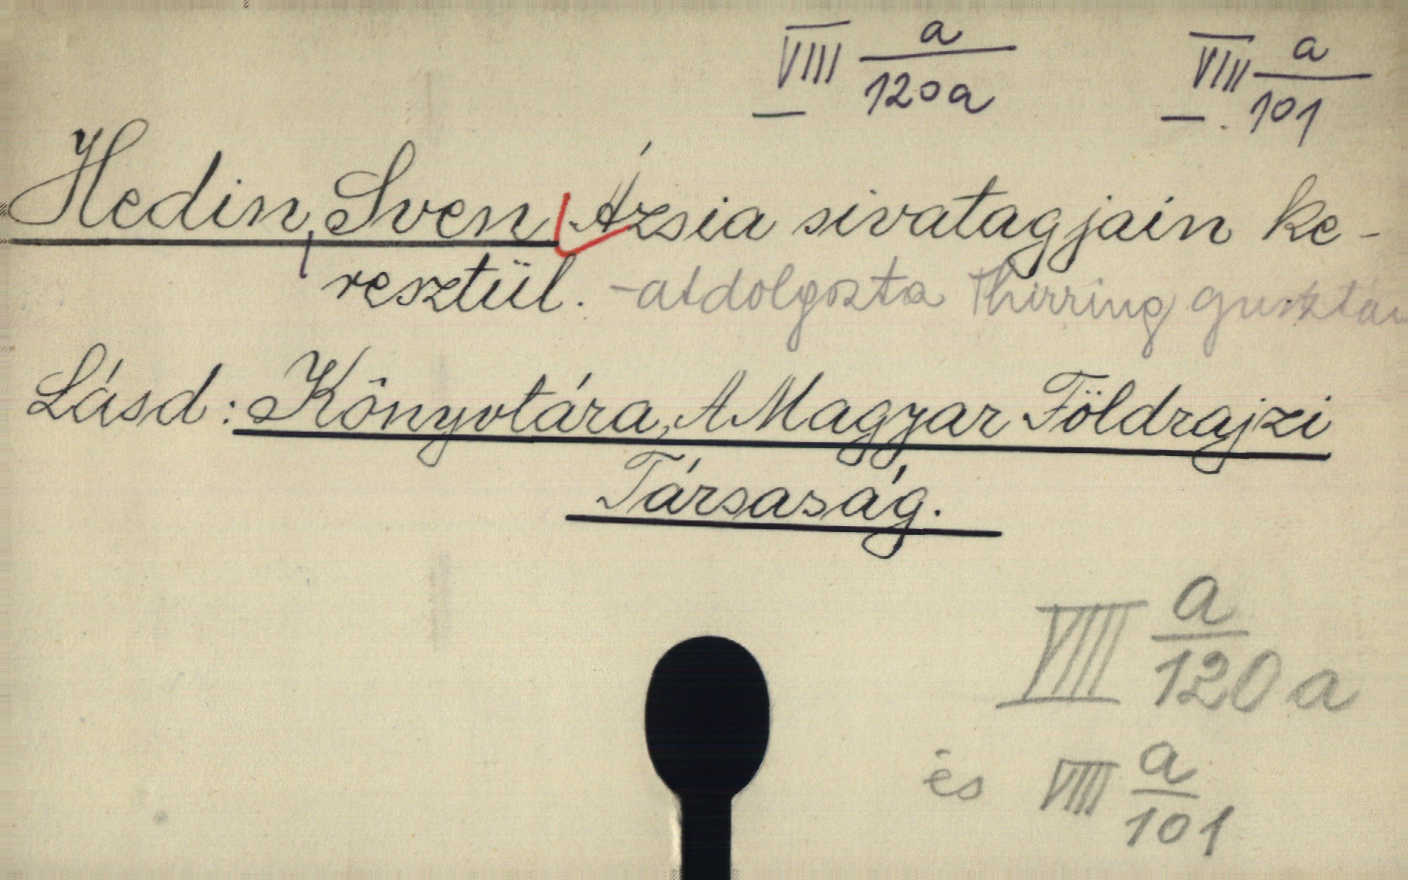 VIII a/120a VIII a/101
Hedin, Sven Ázsia sivatagjain ke-
resztül. -átdolgozta Thirring Gusztáv
Lásd: Könyvtára, A Magyar Földrajzi
Társaság.
VIII a/120a
és VIII a/101